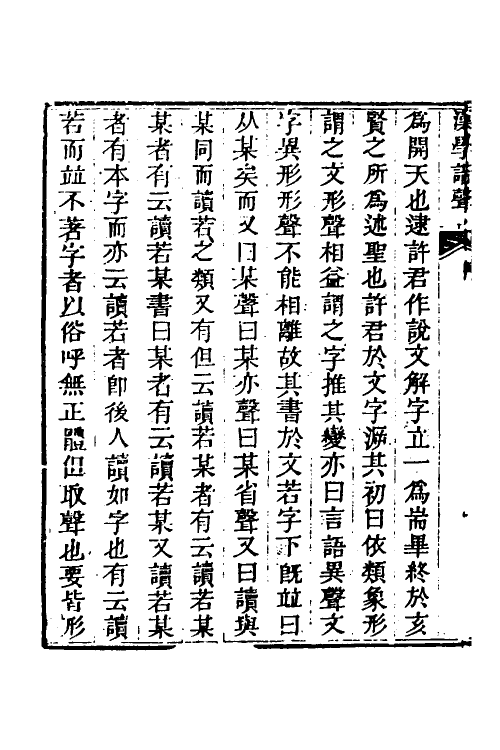 漢學諧聲
為開天也逮許君作說文解字立一為耑畢終於亥
賢之所為述聖也許君於文字溯其初曰依類象形
謂之文形聲相益謂之字推其變亦曰言語異聲文
字異形形聲不能相離故其書於文若字下旣竝曰
从某矣而又曰某聲曰某亦聲曰某省聲又曰讀與
某同而讀若之類又有但云讀若某者有云讀若某
某者有云讀若某書曰某者有云讀若某又讀若某
者有本字而亦云讀若者卽後人讀如字也有云讀
若而竝不著字者以俗呼無正體但取聲也要皆形